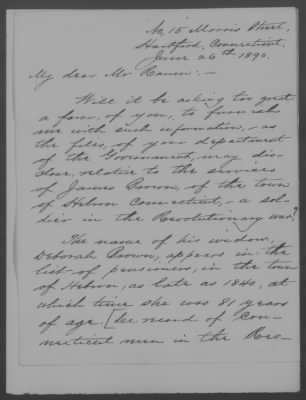 No. 15 Morris Street,
Hartford, Connecticut,
June 26th 1890.
My dear Mr Raum:-
Will it be asking too great
a favor, of you, to furnish
me with such information,- as
the files, of your department
of the Government, may dis-
close, relative to the services
of James Brown, of the town
of Hebron Connecticut,- a sol-
dier in the Revolutionary war?
The name of his widow,
Deborah Brown, appears in the
list of pensioners, in the town
of Hebron, as late as 1840, at
which time she was 81 years
of age. [See record of Con-
necticut men in the Rev-